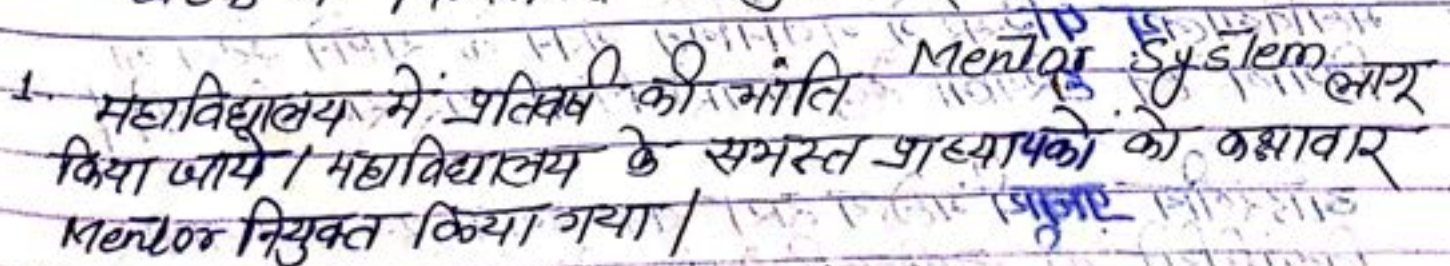 1. महाविद्यालय में प्रतिवर्ष की भांति Mentor System लागू
किया जाये। महाविद्यालय के समस्त प्राध्यापको को कक्षावार
Mentor नियुक्त किया गया।